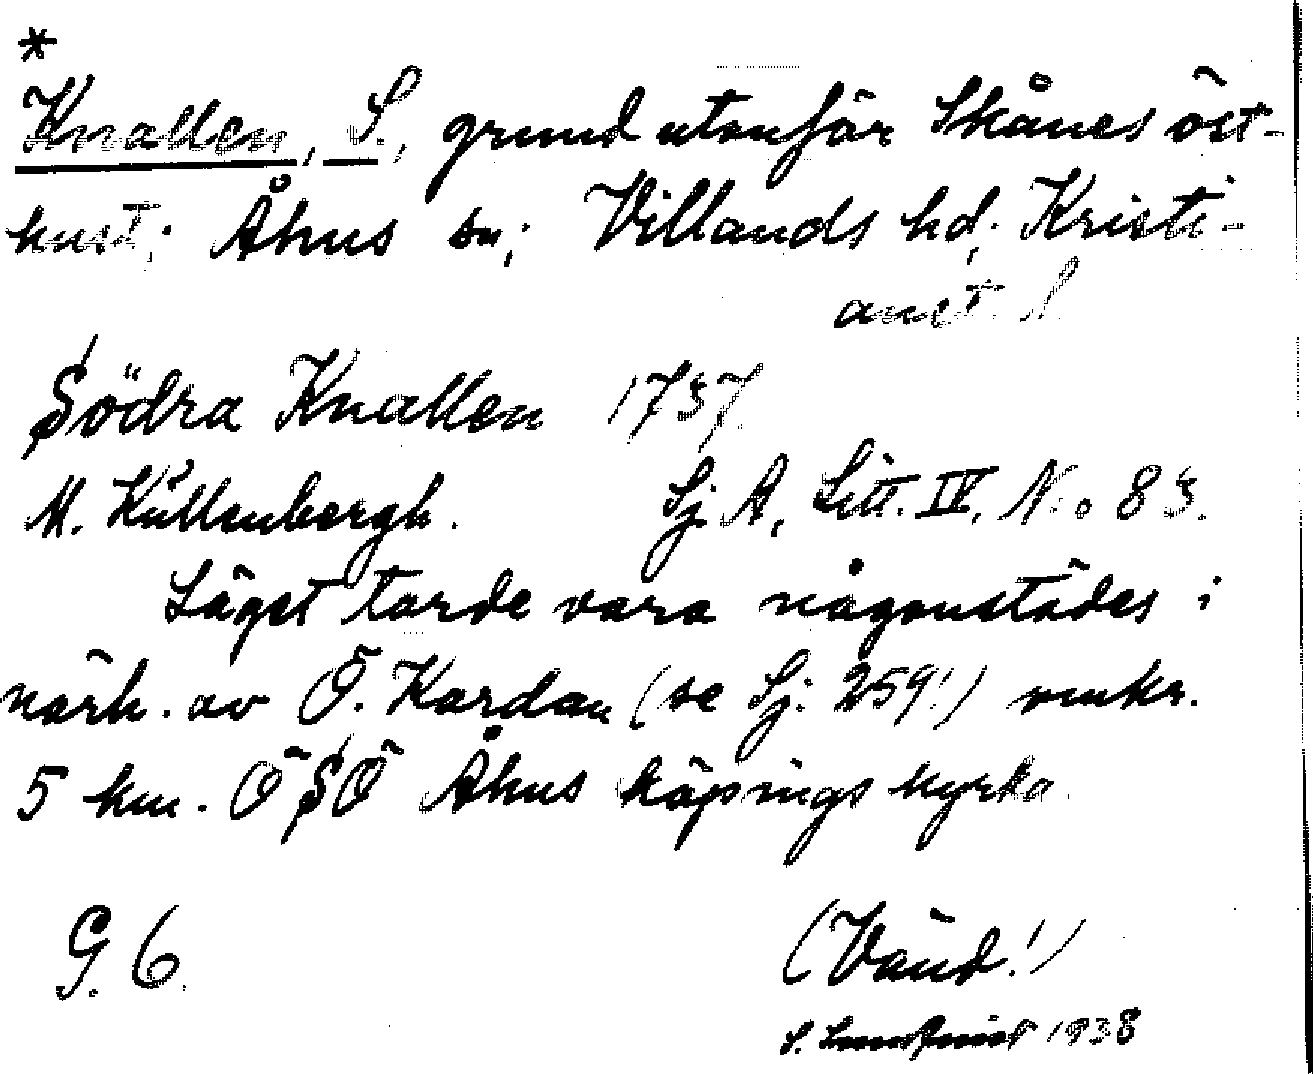 *
Knallen, S., grund utanför Skånes öst-
kust; Åhus sn; Villands hd; Kristi-
anst. l.
Södra Knallen 1737
M. Küllenbergh. Sj. A, Litt. IV, N:o 83.
Läget torde vara någonstädes i
närh. av Ö. Kardan (se Sj. 259!) omkr.
5 km. ÖSÖ Åhus köpings kyrka.
G. 6. (Vänd!)
1938